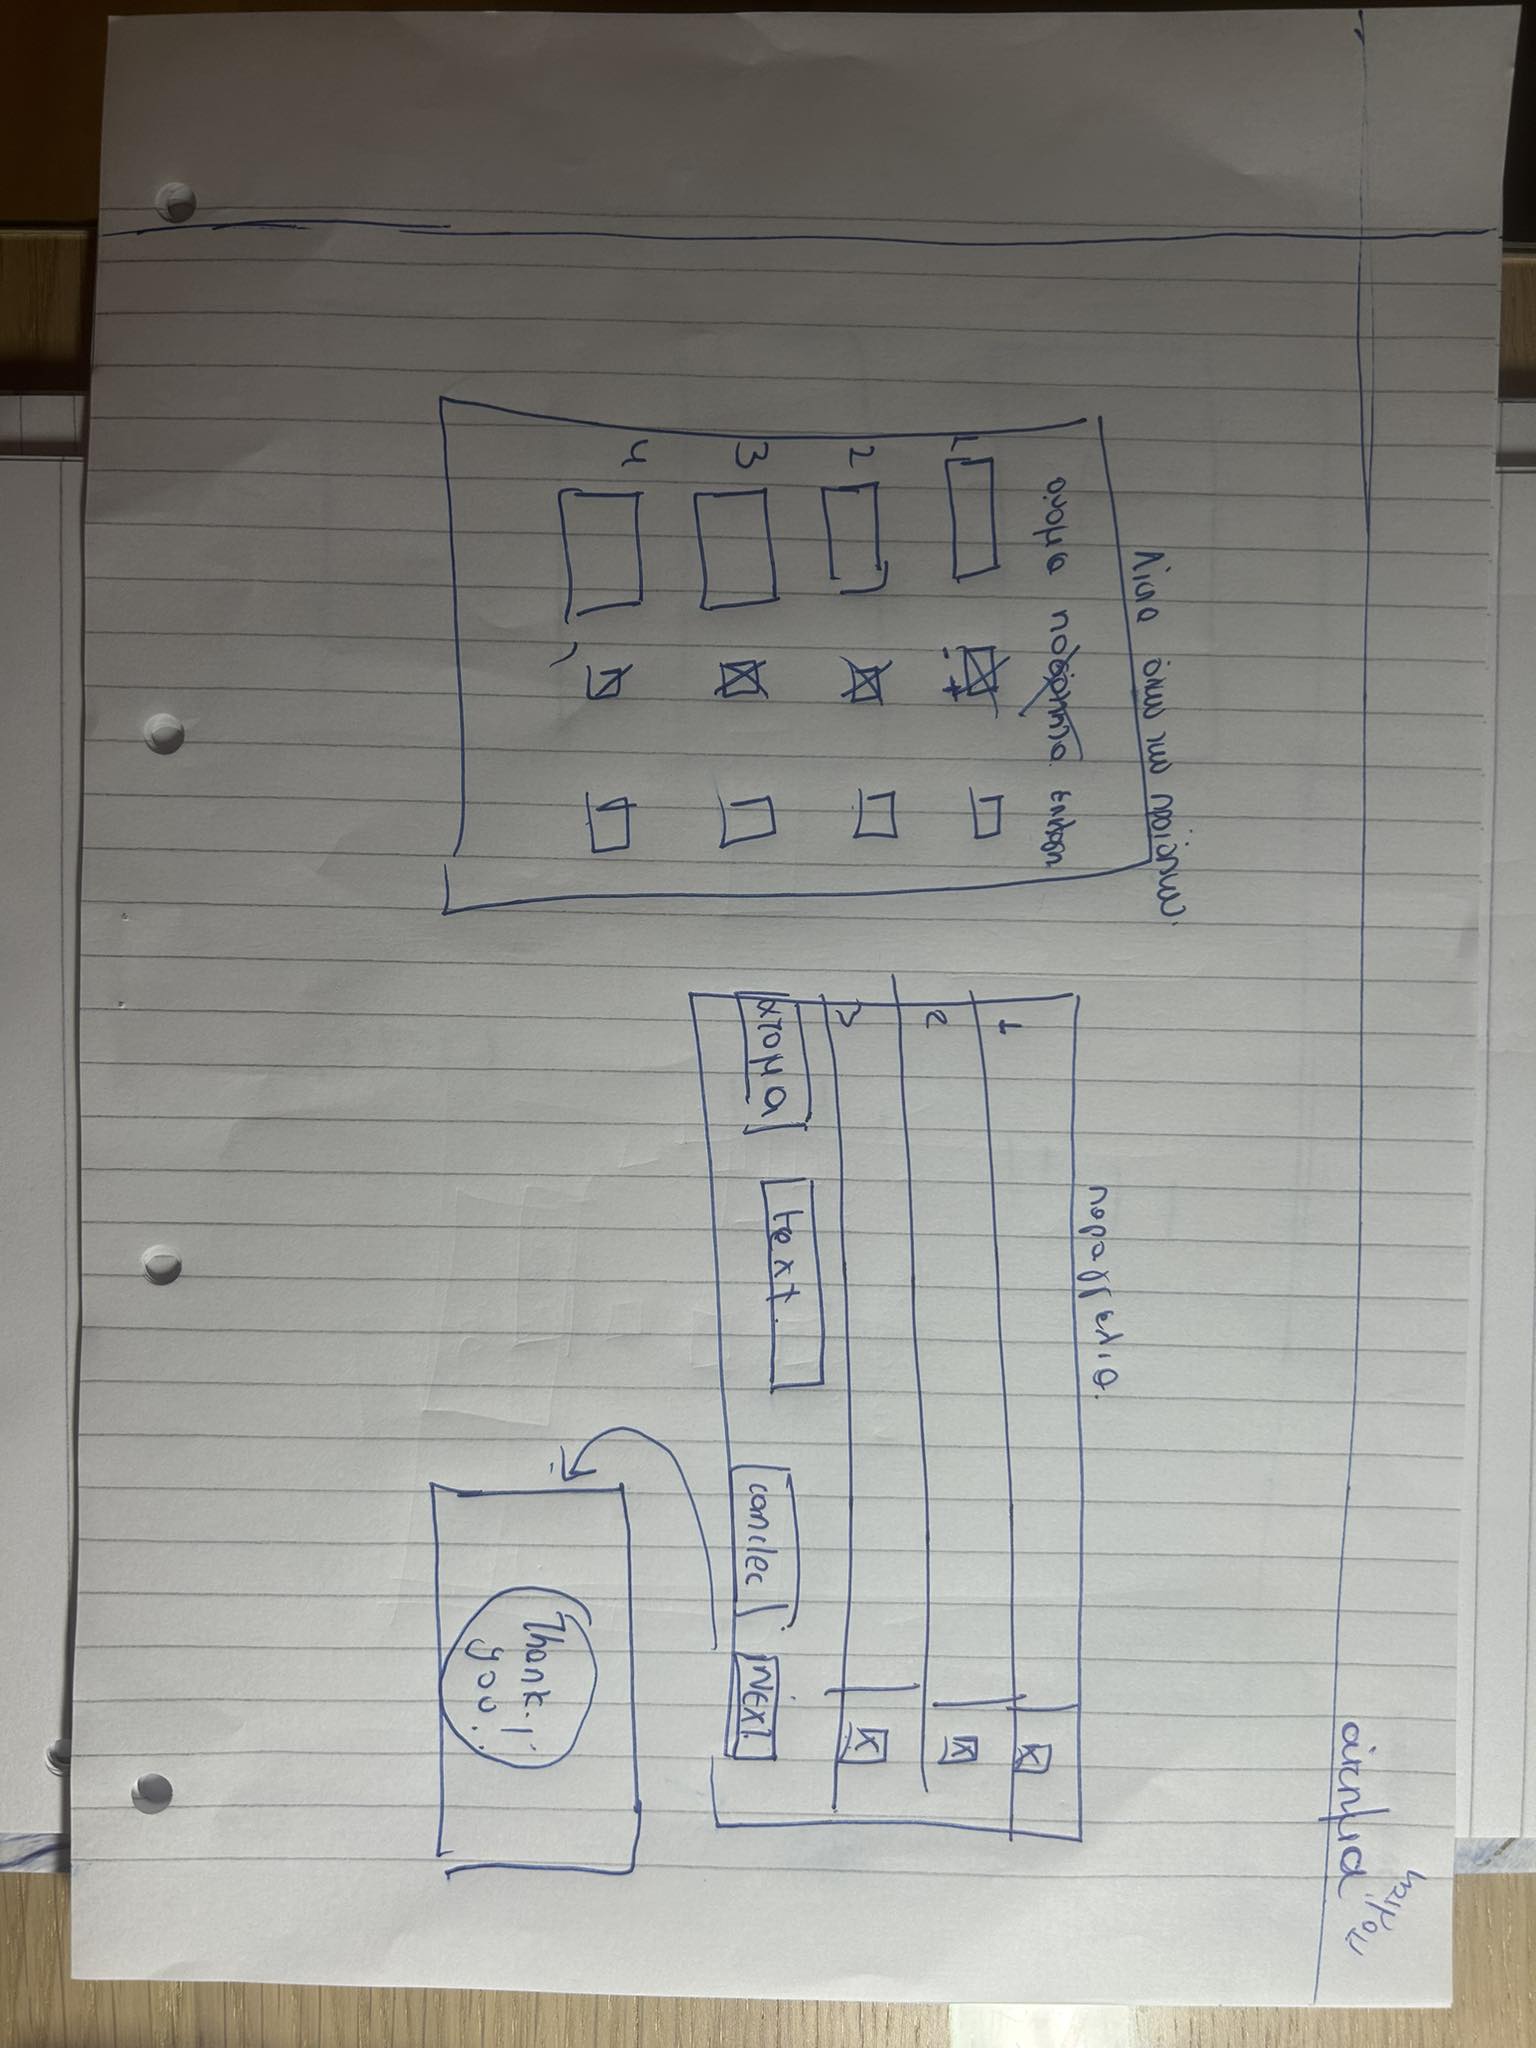 αίτημα
Λίστα όλων των προϊόντων.
όνομα ποσότητα επιλογη
1
- +
2
3
4
παραγγελια.
1 x
2 x
3 x
ατομα text. canclec NEXT.
Thank
you!